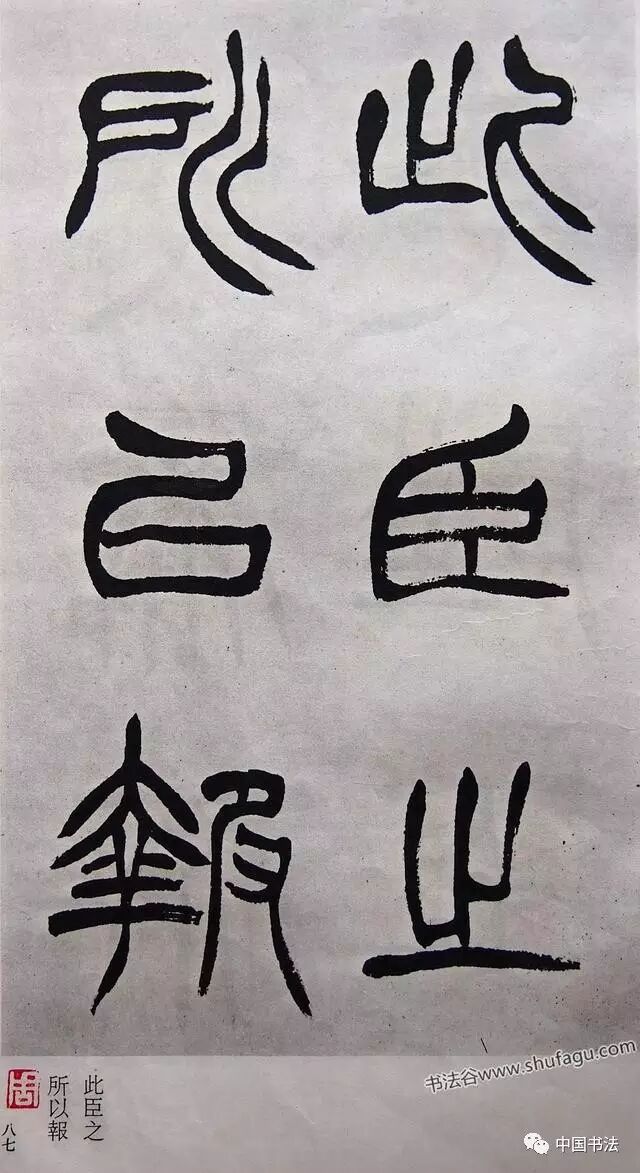 此臣之
所㠯報
此臣之
所以報
八七
书法谷www.shufagu.com
中国书法